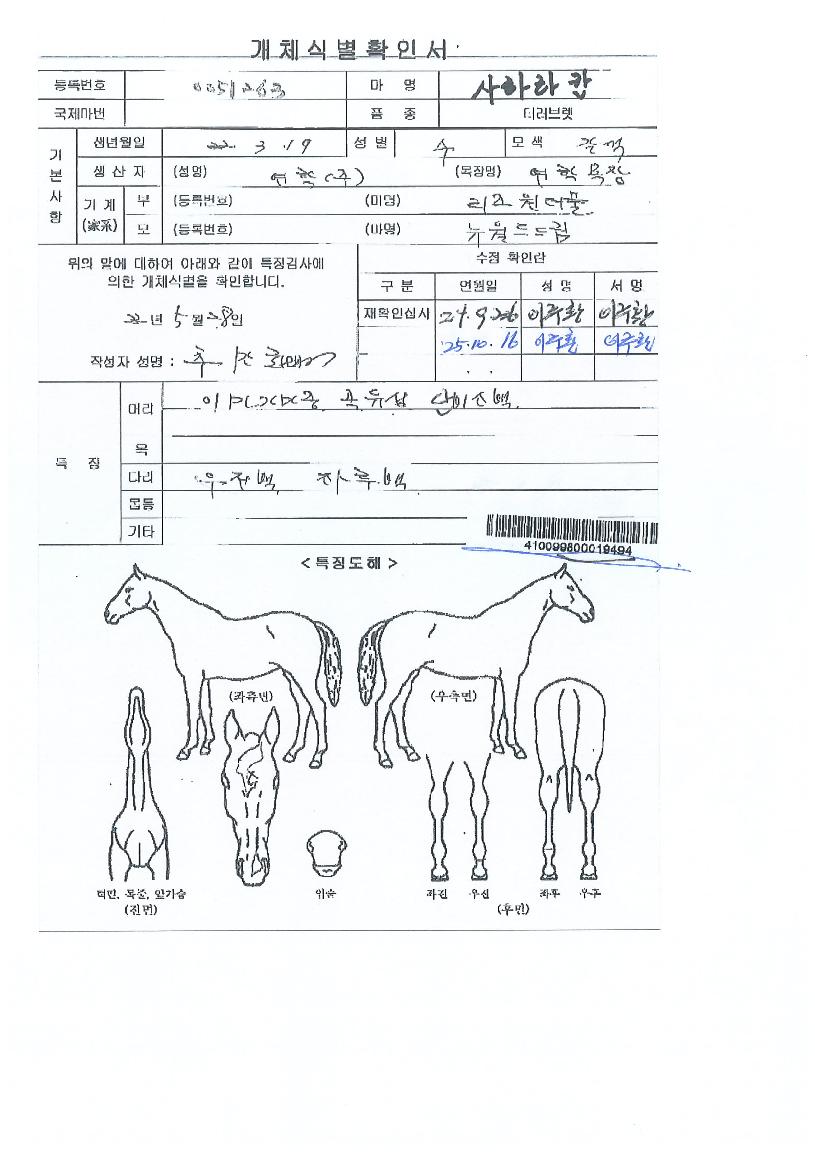 개체식별확인서
등록번호 0051263 마 명 사하라칸
국제마번 품 종 더러브렛
기본사항
생년월일 22. 3. 19 성별 수 모색 갈색
생산자 (성명) (주) (목장명) 목장
기계(家系) 부 (등록번호) (마명) 리조원더풀
모 (등록번호) (마명) 뉴월드드림
위의 말에 대하여 아래와 같이 특징검사에
의한 개체식별을 확인합니다.
22년 5월 28일
작성자 성명 :
수정 확인란
구 분 연월일 성 명 서 명
재확인심사 24.9.26 이주환 이주환
25.10.16 이주환 이주환
. .
특 징
머리
목
다리 우전백, 좌후백
몸통
기타
410099800019494
<특징도해>
(좌측면) (우측면)
턱밑, 목줄, 앞가슴 입술 좌전 우전 좌후 우후
(전면) (후면)